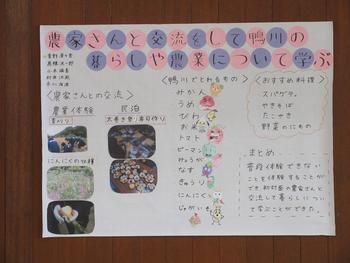 農家さんと交流をして鴨川の
暮らしや農業について学ぶ
〈農家さんとの交流〉
農業体験
民泊
草刈り
太巻き祭り寿司作り
にんにくの収穫
〈鴨川でとれるもの〉
みかん
うめ
びわ
お米
トマト
ピーマン
みょうが
なす
きゅうり
にんにく
じゃがいも
〈おすすめ料理〉
スパゲティ
やきそば
たこやき
野菜のにもの
まとめ
普段体験できない
ことを体験すること
ができ初対面の農家さんと
交流して暮らしについ
て学ぶことができた